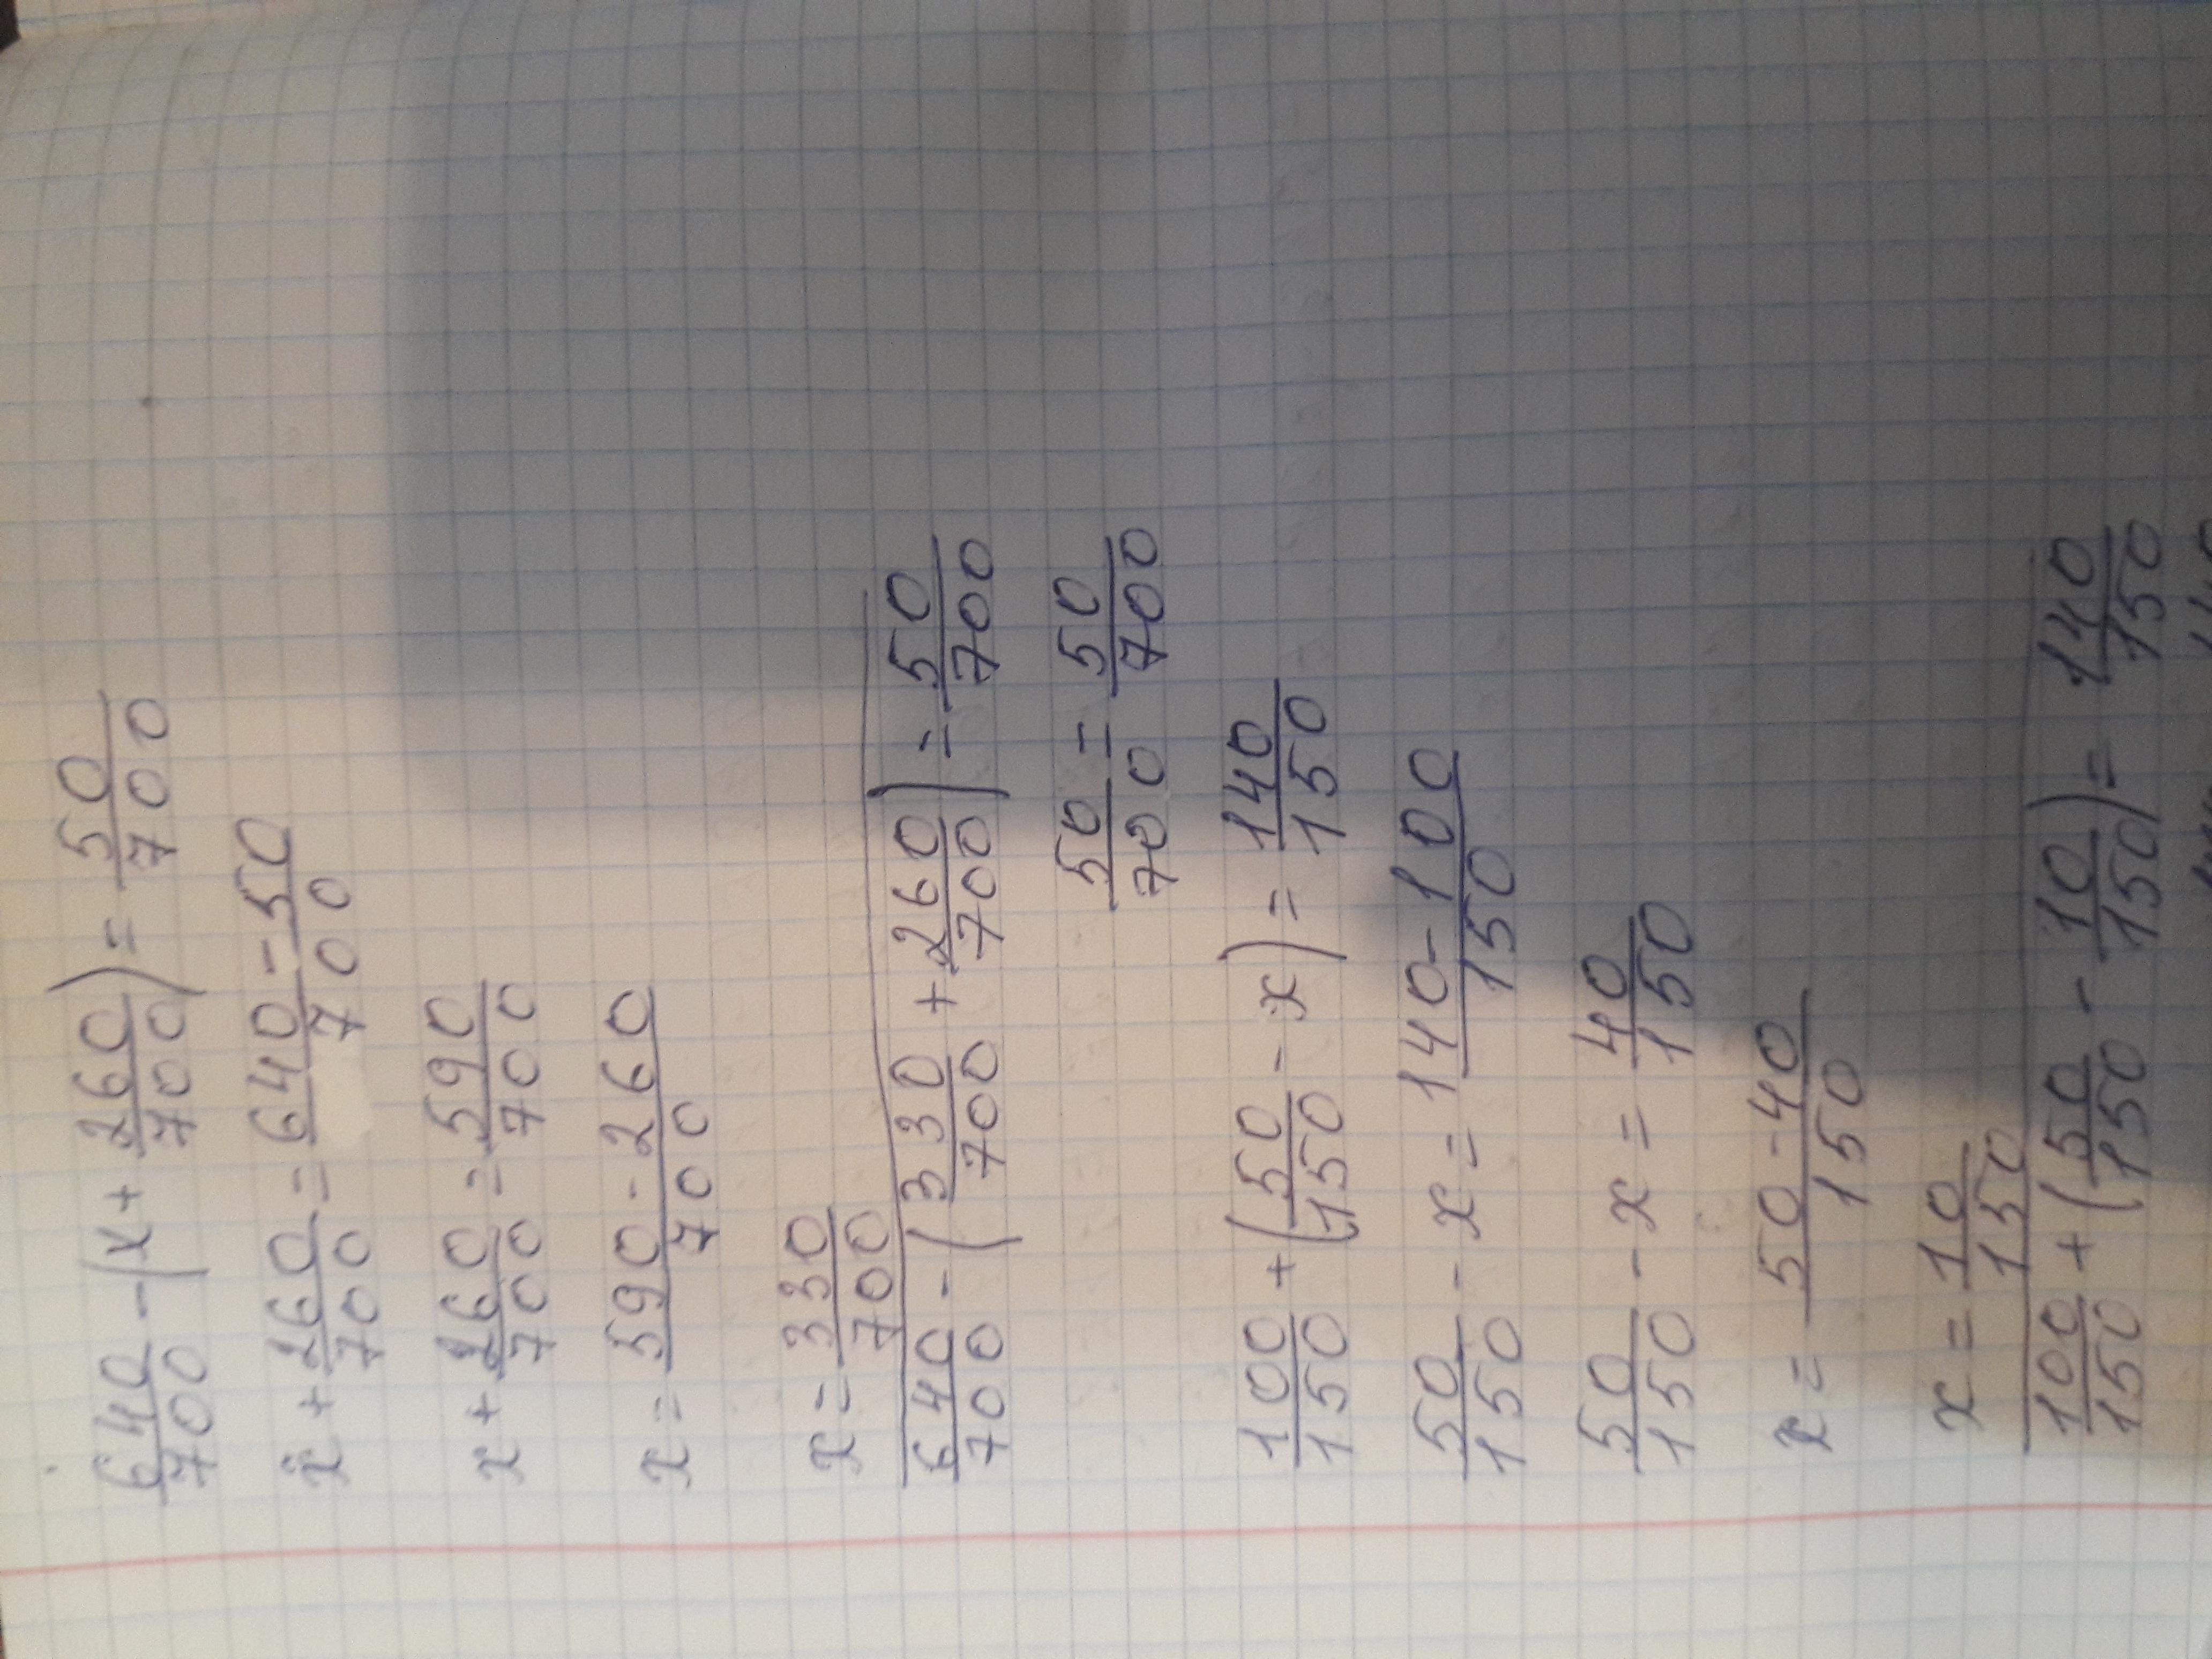 640/700 - (x + 260/700) = 50/700
x + 260/700 = 640 - 50/700
x + 260/700 = 590/700
x = 590 - 260/700
x = 330/700
640/700 - (330/700 + 260/700) = 50/700
50/700 = 50/700
100/150 + (50/150 - x) = 140/150
50/150 - x = 140 - 100/150
50/150 - x = 40/150
x = 50 - 40/150
x = 10/150
100/150 + (50/150 - 10/150) = 140/150